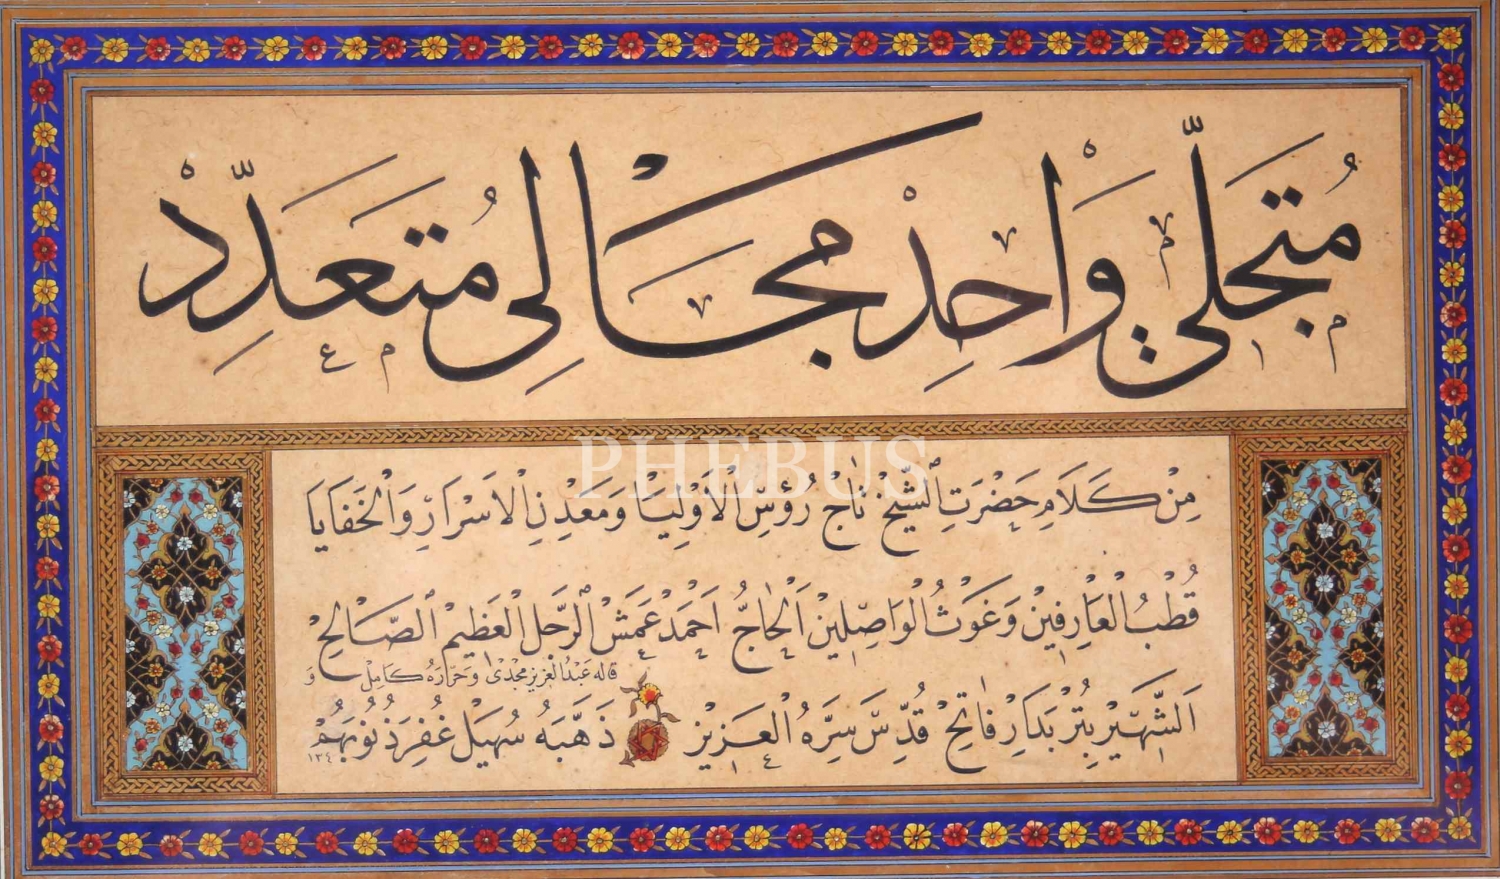 مُتَجَلّي وَاحِدْ مَجَالي مُتَعَدِّدْ
PHEBUS
مِنْ كَلَامِ حَضْرَتِ الشَّيْخْ تَاجْ رُؤُسِ الْأَوْلِيَا وَمَعْدِنِ الْاَسْرَارِ وَالْخَفَايَا
قُطْبُ الْعَارِفِينْ وَغَوْثُ الْوَاصِلِينْ اَلْحَاجُّ اَحْمَدْ عَمَشْ الرَّجُلِ الْعَظِيمْ الصَّالِحْ
قاله عَبْدُ الْعَزِيز مَجْدى وَحَرَّرَهُ كَامِلْ وَ
اَلشَّهِيرْ بِتُرْبَدَارِ فَاتِحْ قُدِّسَ سِرَّهُ الْعَزِيزْ ذَهَّبَهُ سُهَيْل غُفِرَ ذُنُوبَهُمْ